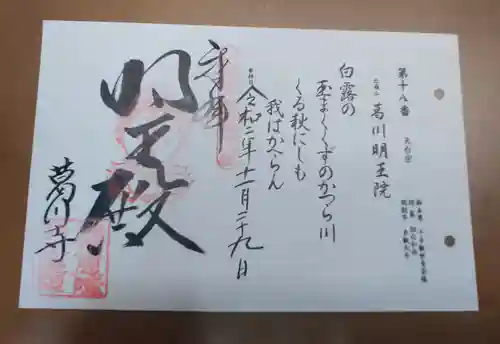 第十八番
天台宗
葛川明王院
白露の
玉まくくずのかつら川
くる秋にしも
我はかへらん
令和二年十一月二十九日
奉拝
明王殿
葛川寺